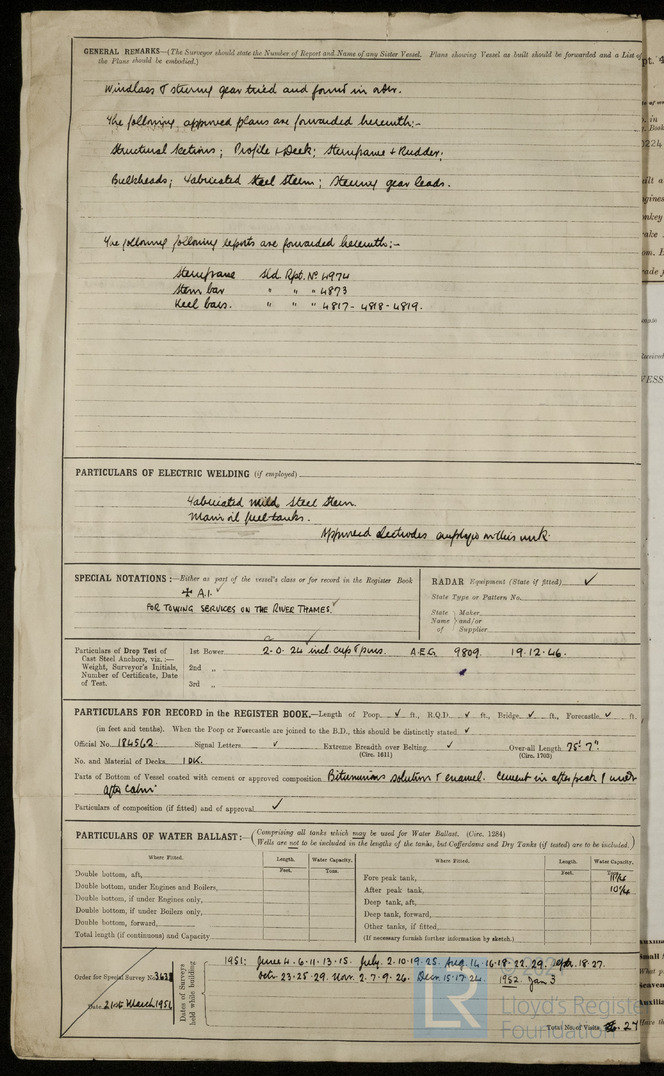 GENERAL REMARKS—(The Surveyor should state the Number of Report and Name of any Sister Vessel. Plans showing Vessel as built should be forwarded and a List of
the Plans should be embodied.)
Windlass & steering gear tried and found in order.
The following approved plans are forwarded herewith:-
Structural Sections; Profile & Deck; Sternframe & Rudder;
Bulkheads; Fabricated Steel Stem; Steering gear leads.
The following following reports are forwarded herewith:-
Sternframe Sld. Rpt. No 4974
Stem bar " " " 4873
Keel bars. " " " 4817 - 4818 - 4819.
PARTICULARS OF ELECTRIC WELDING (if employed)
Fabricated mild Steel Stem.
Main oil fuel tanks.
Approved electrodes employed in this work.
SPECIAL NOTATIONS:—Either as part of the vessel's class or for record in the Register Book
✠ A.1. ✓
FOR TOWING SERVICES ON THE RIVER THAMES. ✓
RADAR Equipment (State if fitted) ✓
State Type or Pattern No.
State Name of } Maker and/or Supplier
Particulars of Drop Test of Cast Steel Anchors, viz.:— Weight, Surveyor's Initials, Number of Certificate, Date of Test.
1st Bower 2-0-24 incl. cup & pins. A.E.G. 9809. 19.12.46.
2nd "
3rd "
PARTICULARS FOR RECORD in the REGISTER BOOK.—Length of Poop ✓ ft., R.Q.D. ✓ ft., Bridge ✓ ft., Forecastle ✓ ft.
(in feet and tenths). When the Poop or Forecastle are joined to the B.D., this should be distinctly stated ✓
Official No. 184562. Signal Letters ✓ Extreme Breadth over Belting ✓ (Circ. 1611) Over-all Length 75' 7" (Circ. 1703)
No. and Material of Decks 1 DK.
Parts of Bottom of Vessel coated with cement or approved composition Bituminous solution & enamel. Cement in after peak & under
after cabin.
Particulars of composition (if fitted) and of approval ✓
PARTICULARS OF WATER BALLAST:—(Comprising all tanks which may be used for Water Ballast. (Circ. 1284)
Wells are not to be included in the lengths of the tanks, but Cofferdams and Dry Tanks (if tested) are to be included.)
Where Fitted. Length. Water Capacity. Where Fitted. Length. Water Capacity.
Feet. Tons. Feet. Tons.
Double bottom, aft, Fore peak tank,
Double bottom, under Engines and Boilers, After peak tank,
Double bottom, if under Engines only, Deep tank, aft,
Double bottom, if under Boilers only, Deep tank, forward,
Double bottom, forward, Other tanks, if fitted,
Total length (if continuous) and Capacity (If necessary furnish further information by sketch.)
Order for Special Survey No. 3631
Date 21st March 195
Dates of Surveys held while building
1951: June 4. 6. 11. 13. 15. July. 2. 10. 19. 25. Aug. 14. 16. 18. 22. 29. Sept. 18. 27.
Octr. 23. 25. 29. Nov. 2. 7. 9. 26. Decr. 15. 17. 24. 1952 Jan 3
Total No. of Visits 27
LR
Lloyd's Register
Foundation